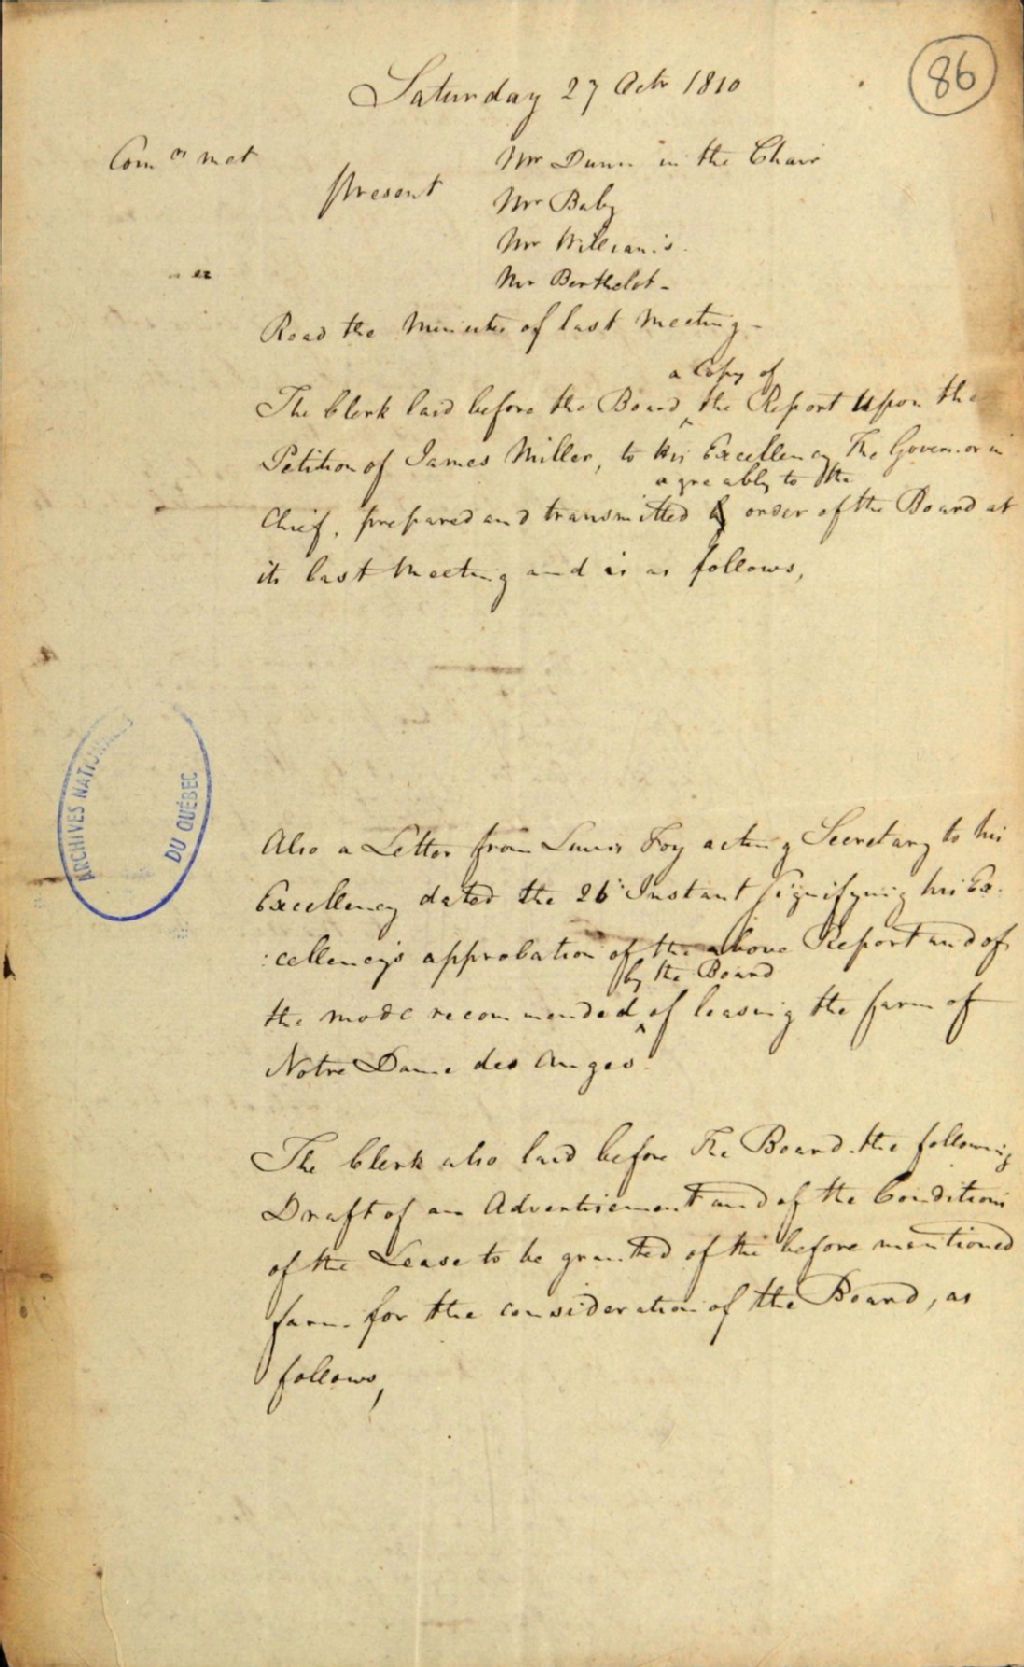 86
Saturday 27 Octr 1810
Comrs met
Present
Mr Dunn in the Chair
Mr Baby
Mr Williams.
Mr Berthelot -
Read the Minutes of last Meeting -
a Copy of
The Clerk laid before the Board ^ the Report upon the
Petition of James Miller, to his Excellency The Governor in
agreeably to the
Chief, prepared and transmitted order of the Board at
its last Meeting and is as follows,
ARCHIVES NATIONALES
DU QUÉBEC
Also a Letter from Louis Foy acting Secretary to his
Excellency dated the 26 Instant Signifying his Ex-
:cellency's approbation of the above Report and of
by the Board
the mode recommended ^ of leasing the farm of
Notre Dame des Anges.
The Clerk also laid before The Board the following
Draft of an Advertisement and of the Conditions
of the Lease to be granted of the before mentioned
farm for the consideration of the Board, as
follows,